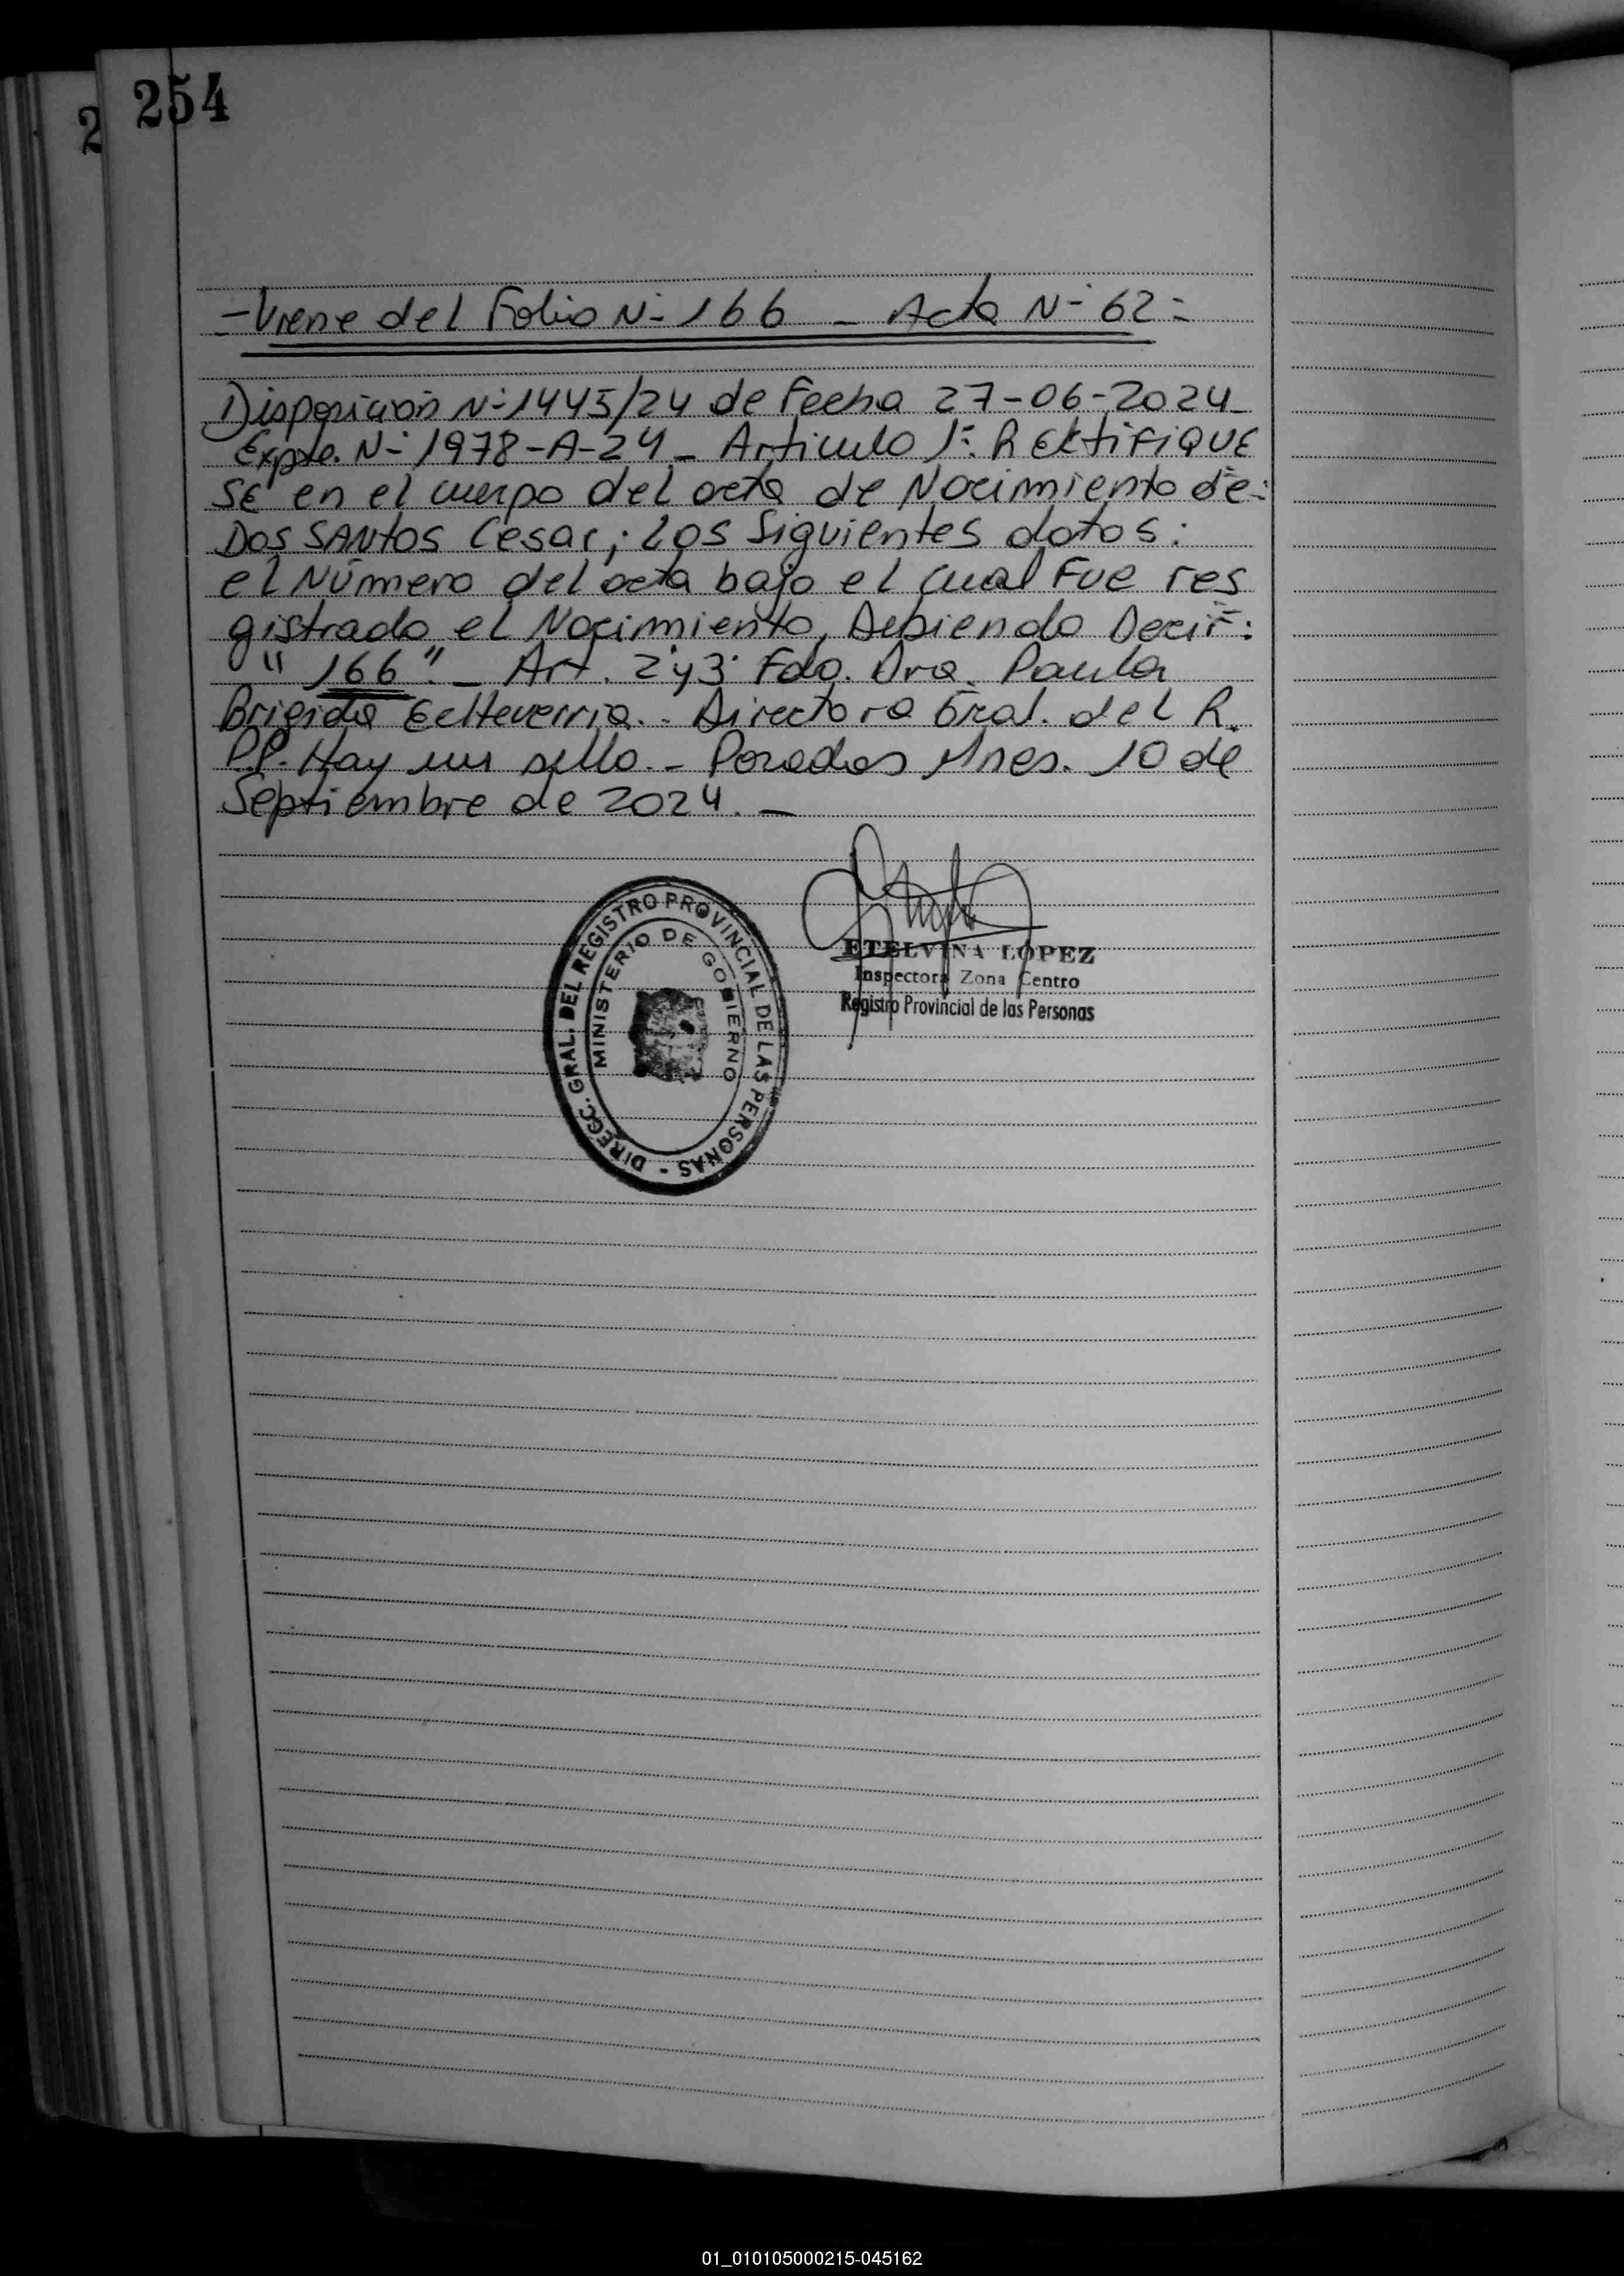 254
2
- Viene del Folio N- 166 - Acta N- 62 =
Disposición N-1445/24 de Fecha 27-06-2024_
Expte. N- 1978-A-24_ Articulo 1º: REKtiFiQUE
SE en el cuerpo del acta de Nacimiento de:
Dos SANtos Cesar; Los Siguientes datos:
el Número del acta bajo el cual Fue res
gistrado el Nacimiento, Debiendo Decir:
" 166 ". _ Art. 2º y 3º Fdo. Dra. Paula
Brigida Echeverria. - Directora Gral. del R.
P.P. Hay un sello. - Posadas Mnes. 10 de
Septiembre de 2024. _
DIRECC. GRAL. DEL REGISTRO PROVINCIAL DE LAS PERSONAS -
MINISTERIO DE GOBIERNO
ETELVINA LOPEZ
Inspectora Zona Centro
Registro Provincial de las Personas
01_010105000215-045162